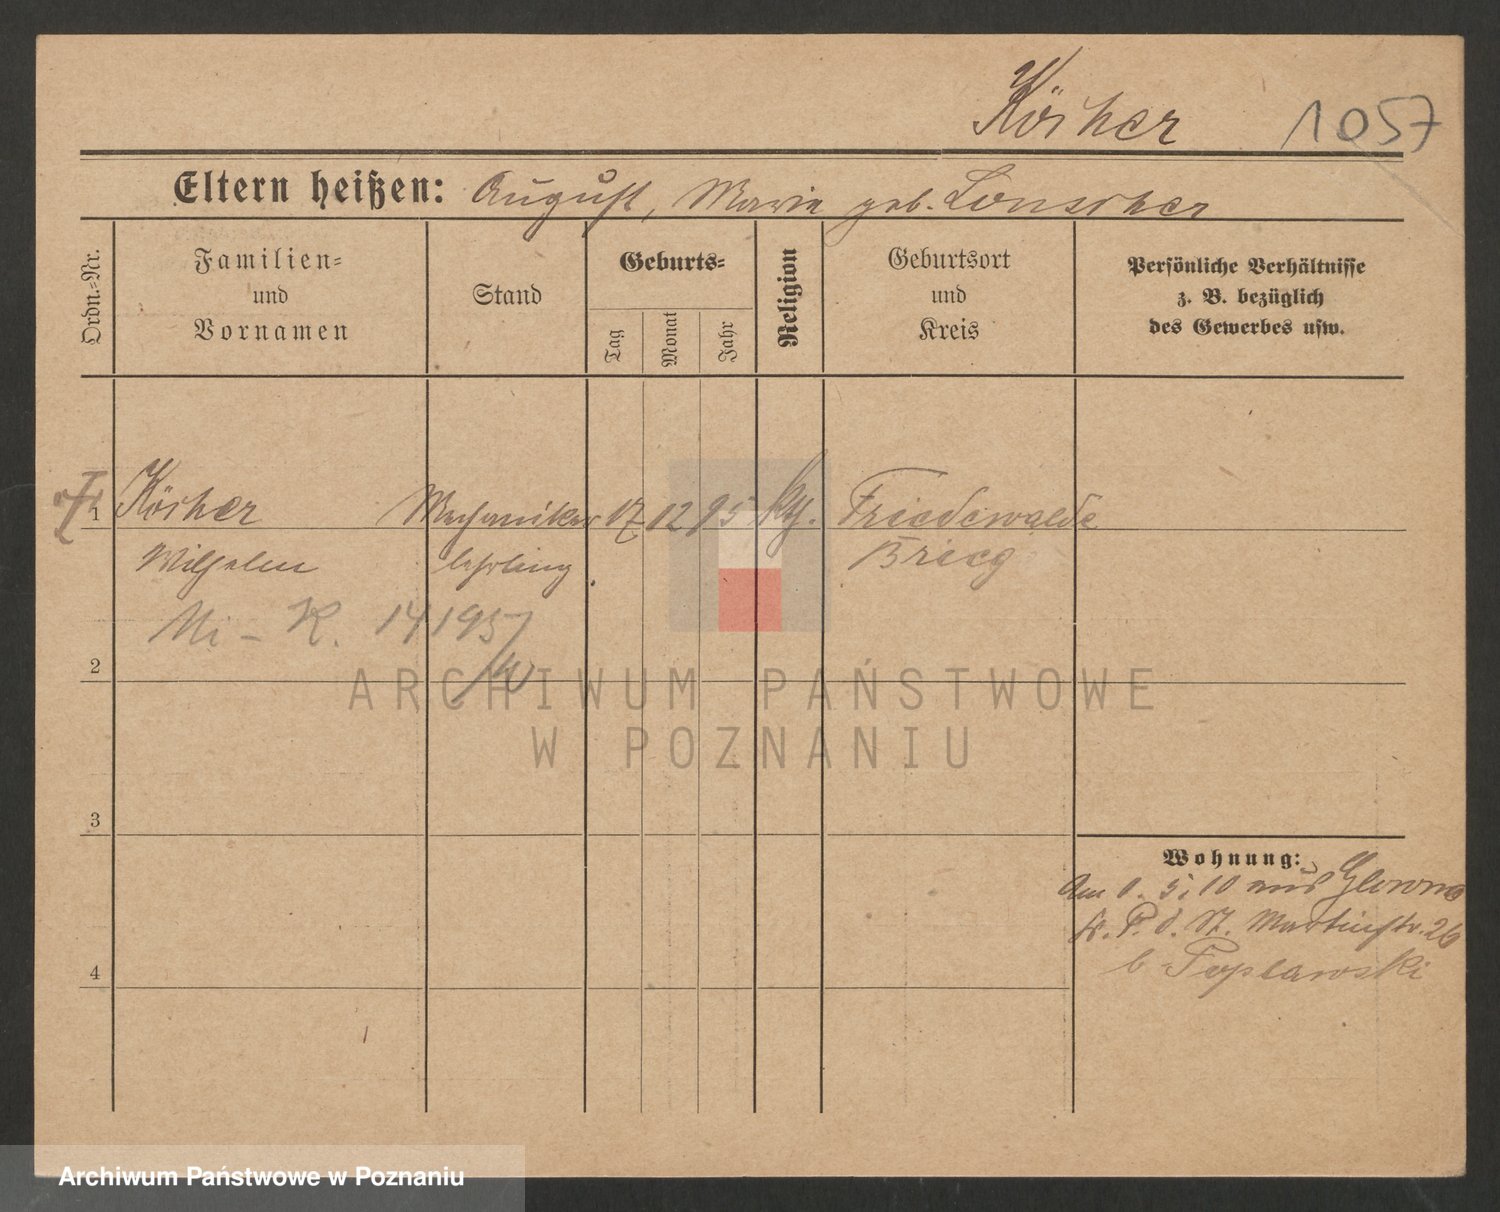 Kösher 1057
Eltern heißen: August, Marie geb.
Ordn.-Nr.
Familien-
und
Vornamen
Stand
Geburts-
Tag
Monat
Jahr
Religion
Geburtsort
und
Kreis
Persönliche Verhältnisse
z. B. bezüglich
des Gewerbes usw.
1 Kösher Mechaniker 17 12 95 kth. Friedewalde
Wilhelm lehrling Brieg
Mi - K. 14195
2
3
4
Wohnung:
Am 1. 5. 10 aus Glowno
St. Martinstr. 26
b. Poplawski
ARCHIWUM PAŃSTWOWE
W POZNANIU
Archiwum Państwowe w Poznaniu